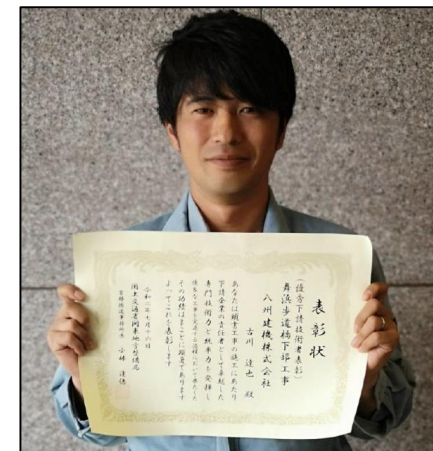 表彰状
(優秀下請技術者表彰)
舞浜歩道橋下部工事
八州建機株式会社
古川 達也 殿
あなたは頭書工事の施工にあたり
下請企業の責任者として卓越した
専門技術力と統率力を発揮し
優秀な工事を
その功績はまことに顕著であります
よってこれを表彰します
令和二年七月十六日
国土交通省関東地方整備局
首都国道事務所長 小林 達徳